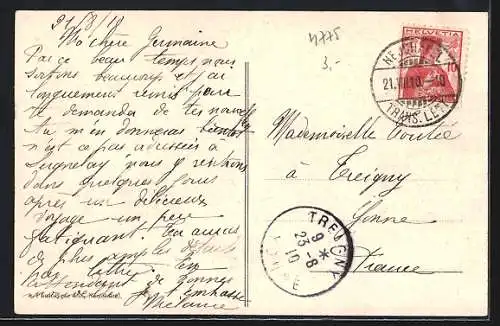 21/8/10
4775
3.-
Ma chère Germaine
Par ce beau temps nous
sortons beaucoup et j'ai
longuement remis pour
te demander de tes nouvelles
tu m'en donneras bientôt
n'est ce pas adressées à
Seignelay nous y rentrons
dans quelques jours
après un délicieux
voyage un peu
fatiguant. Tu auras
de plus amples détails
par lettre. En
attendant de
bonnes
je t'embrasse
Mélanie
HELVETIA
10
NEUCHATEL
21.VIII.10.-10
TRANS. LETT.
Mademoiselle
à Treigny
Yonne
France
TREIGNY
9 *
23-8
10
YONNE